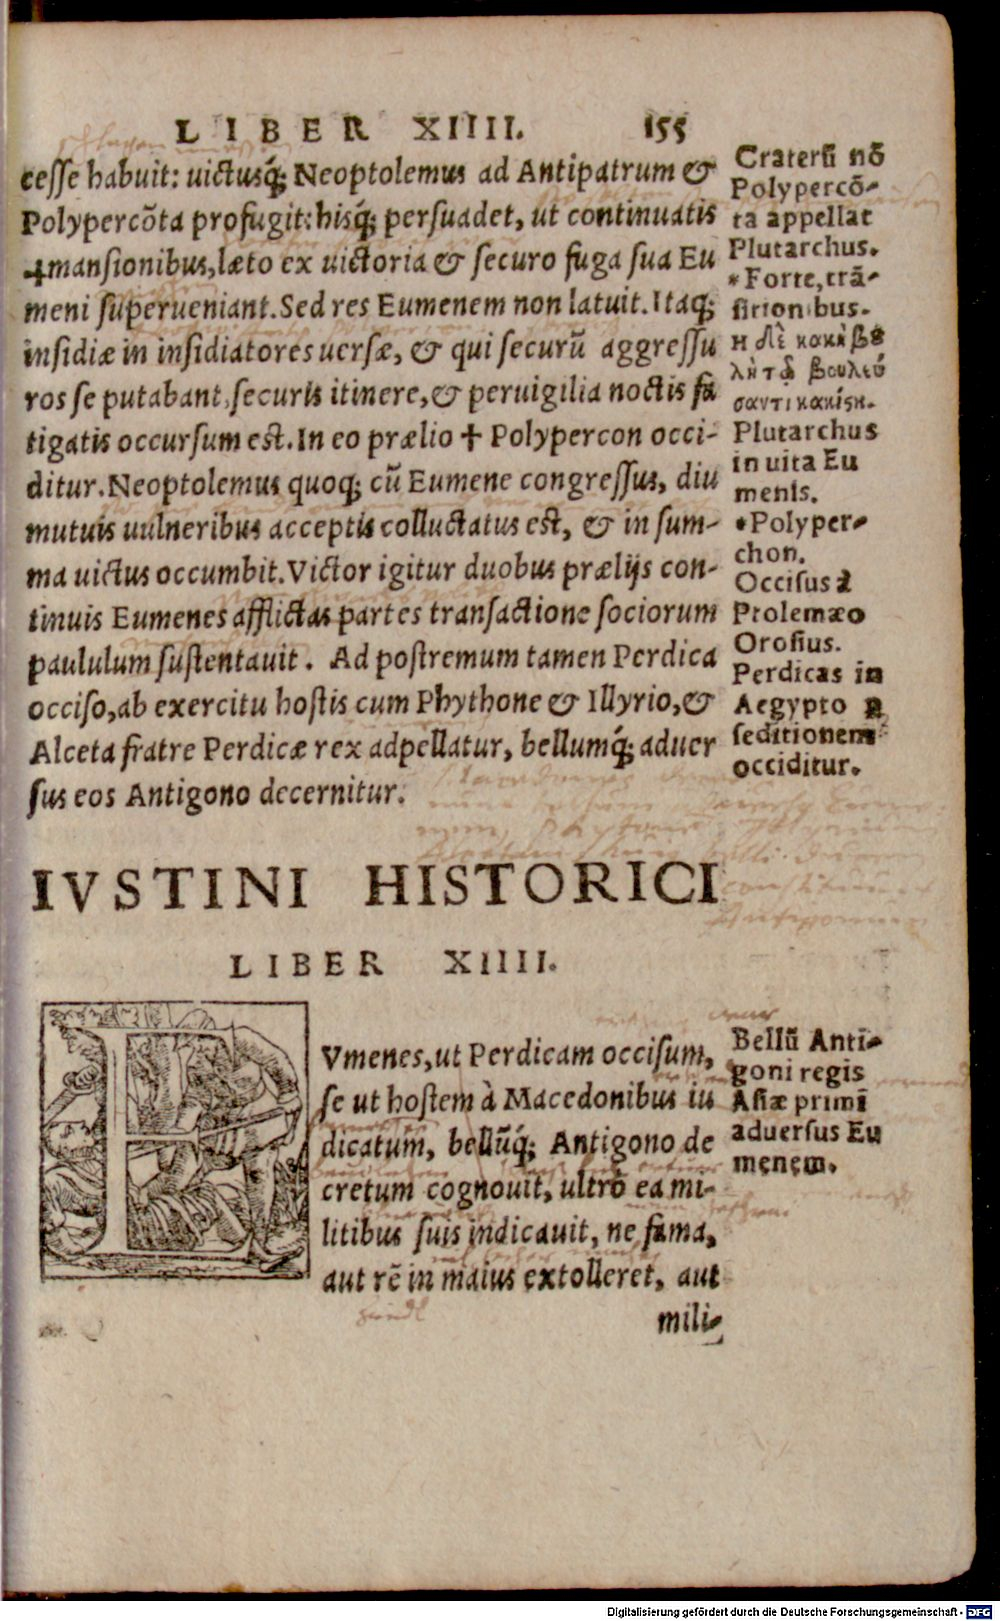 LIBER XIIII. 155
cesse habuit: uictusq́; Neoptolemus ad Antipatrum &
Polypercõta profugit: hisq́; persuadet, ut continuatis
mansionibus, læto ex uictoria & securo fuga sua Eu
meni superueniant. Sed res Eumenem non latuit. Itaq;
insidiæ in insidiatores uersæ, & qui securũ aggressu
ros se putabant, securis itinere, & peruigilia noctis fa
tigatis occursum est. In eo prælio ✝ Polypercon occi-
ditur. Neoptolemus quoq; cũ Eumene congressus, diu
mutuis uulneribus acceptis colluctatus est, & in sum-
ma uictus occumbit. Victor igitur duobus prælijs con-
tinuis Eumenes afflictas partes transactione sociorum
paululum sustentauit. Ad postremum tamen Perdica
occiso, ab exercitu hostis cum Phythone & Illyrio, &
Alceta fratre Perdicæ rex adpellatur, bellumq́; aduer
sus eos Antigono decernitur.
Craterũ nõ
Polypercõ-
ta appellat
Plutarchus.
*Forte, trã-
sitionibus.
Plutarchus
in uita Eu
menis.
*Polyper-
chon.
Occisus à
Ptolemæo
Orosius.
Perdicas in
Aegypto
seditionem
occiditur.
IVSTINI HISTORICI
LIBER XIIII.
EVmenes, ut Perdicam occisum,
se ut hostem à Macedonibus iu
dicatum, bellũq́; Antigono de
cretum cognouit, ultrò ea mi-
litibus suis indicauit, ne fama,
aut rẽ in maius extolleret, aut
mili-
Bellũ Anti-
goni regis
Asiæ primi
aduersus Eu
menem.
Digitalisierung gefördert durch die Deutsche Forschungsgemeinschaft - DFG